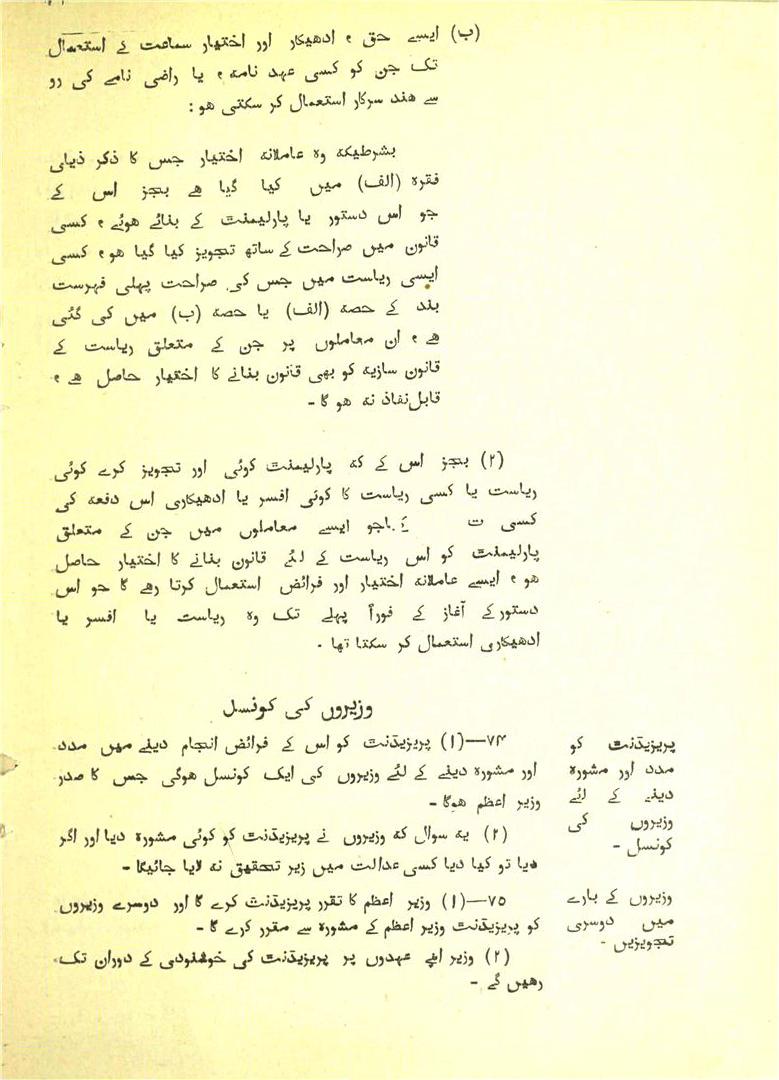 (ب) ایسے حق ، ادھیکار اور اختیار سماعت کے استعمال
تک جن کو کسی عہد نامہ ، یا راضی نامے کی رو
سے ھند سرکار استعمال کر سکتی ھو :
بشرطیکہ وہ عاملانہ اختیار جس کا ذکر ذیلی
فقرہ (الف) میں کیا گیا ھے بجز اس کے
جو اس دستور یا پارلیمنٹ کے بنائے ھوئے ، کسی
قانون میں صراحت کے ساتھ تجویز کیا گیا ھو ، کسی
ایسی ریاست میں جس کی صراحت پہلی فہرست
بند کے حصہ (الف) یا حصہ (ب) میں کی گئی
ھے ، ان معاملوں پر جن کے متعلق ریاست کے
قانون سازیہ کو بھی قانون بنانے کا اختیار حاصل ھے ،
قابل نفاذ نہ ھو گا -
(۲) بجز اس کے کہ پارلیمنٹ کوئی اور تجویز کرے کوئی
ریاست یا کسی ریاست کا کوئی افسر یا ادھیکاری اس دفعہ کی
کسی ایسے معاملوں میں جن کے متعلق
پارلیمنٹ کو اس ریاست کے لئے قانون بنانے کا اختیار حاصل
ھو ، ایسے عاملانہ اختیار اور فرائض استعمال کرتا رھے گا جو اس
دستور کے آغاز کے فوراً پہلے تک وہ ریاست یا افسر یا
ادھیکاری استعمال کر سکتا تھا -
وزیروں کی کونسل
پریزیڈنٹ کو
مدد اور مشورہ
دینے کے لئے
وزیروں کی
کونسل -
۷۴—(۱) پریزیڈنٹ کو اس کے فرائض انجام دینے میں مدد
اور مشورہ دینے کے لئے وزیروں کی ایک کونسل ھوگی جس کا صدر
وزیر اعظم ھوگا -
(۲) یہ سوال کہ وزیروں نے پریزیڈنٹ کو کوئی مشورہ دیا اور اگر
دیا تو کیا دیا کسی عدالت میں زیر تحقیق نہ لایا جائیگا -
وزیروں کے بارے
میں دوسری
تجویزیں -
۷۵—(۱) وزیر اعظم کا تقرر پریزیڈنٹ کرے گا اور دوسرے وزیروں
کو پریزیڈنٹ وزیر اعظم کے مشورہ سے مقرر کرے گا -
(۲) وزیر اپنے عہدوں پر پریزیڈنٹ کی خوشنودی کے دوران تک
رھیں گے -